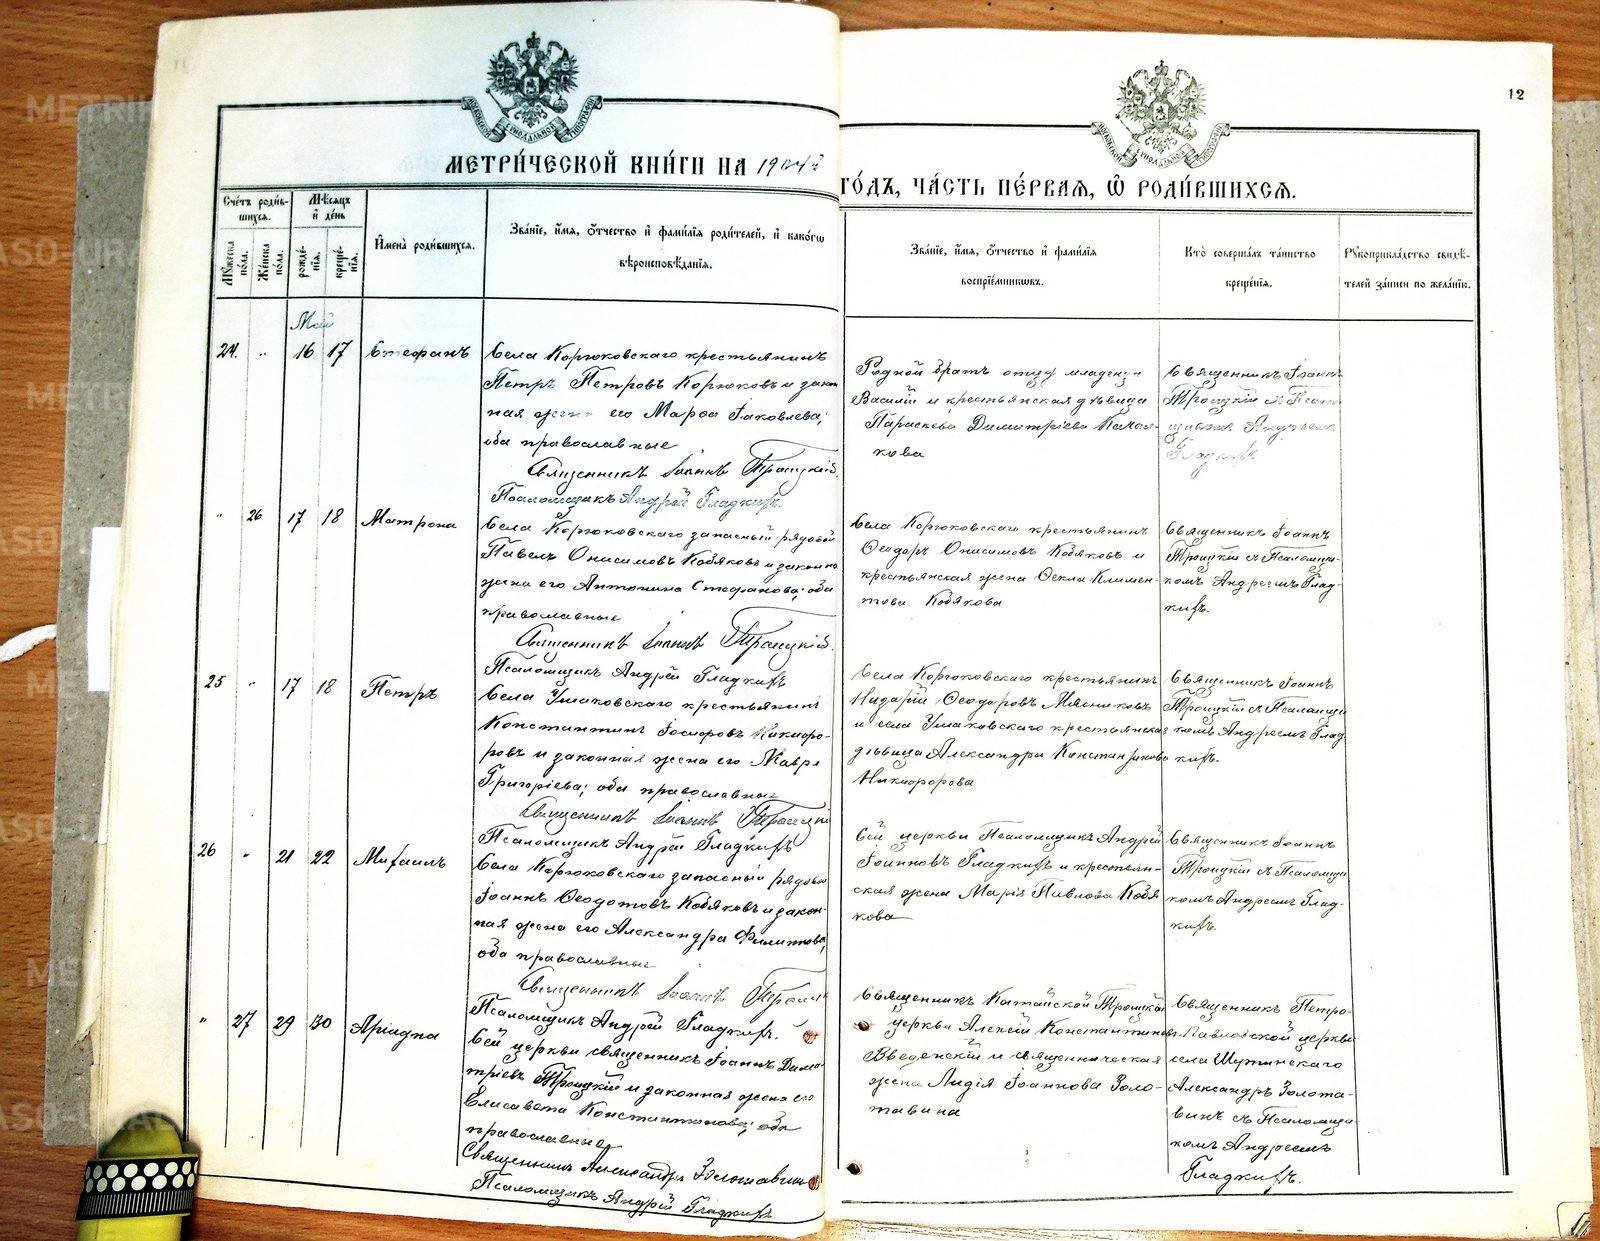 12
МОСКОВСКОЙ СѴНОДАЛЬНОЙ ТИПОГРАФІИ
МОСКОВСКОЙ СѴНОДАЛЬНОЙ ТИПОГРАФІИ
МЕТРИ́ЧЕСКОЙ КНИ́ГИ НА 1904й
ГО́ДЪ, ЧА́СТЬ ПЕ́РВАЯ, Ѽ РОДИ́ВШИХСЯ.
Сче́тъ роди́в-
шихся.
Мѣ́сяцъ
и҆ де́нь
Мꙋ́жеска по́ла.
Же́нска по́ла.
рожде́-
нїѧ.
креще́-
нїѧ.
И҆мена̀ роди́вшихся.
Зва́нїе, и҆́мѧ, ѻ҆́тчество и҆ фамі́лїѧ роди́телей, и҆ како́гѡ
вѣроисповѣ́данїѧ.
Зва́нїе, и҆́мѧ, ѻ҆́тчество и҆ фамі́лїѧ
воспрїе́мникѡвъ.
Кто̀ соверша́лъ та́инство
креще́нїѧ.
Рꙋкоприкла́дство свидѣ́-
телей за́писи по жела́нїю.
Май
24. „ 16 17 Стефанъ
Села Корюковскаго крестьянинъ
Петръ Петровъ Корюковъ и закон
ная жена его Марѳа Іаковлева;
оба православные
Священникъ Іоаннъ Троицкій.
Псаломщикъ Андрей Гладкихъ.
Родной братъ отцу младенца
Василій и крестьянская дѣвица
Параскева Димитріева Качал-
кова
Священникъ Іоаннъ
Троицкій съ Псалом
щикомъ Андреемъ
Гладкихъ
„ 26 17 18 Матрона
Села Корюковскаго запасный рядовой
Павелъ Онисимовъ Кобяковъ и законна
жена его Антонина Стефанова; оба
православные
Священникъ Іоаннъ Троицкій.
Псаломщикъ Андрей Гладкихъ
Села Корюковскаго крестьянинъ
Ѳеодоръ Онисимовъ Кобяковъ и
крестьянская жена Ѳекла Климен-
това Кобякова
Священникъ Іоаннъ
Троицкій съ Псаломщи-
комъ Андреемъ Глад-
кихъ.
25 „ 17 18 Петръ
Села Ушаковскаго крестьянинъ
Константинъ Никифо-
ровъ и законная жена его Мавра
Григоріева; оба православные
Священникъ Іоаннъ Троицкій
Псаломщикъ Андрей Гладкихъ
Села Корюковскаго крестьянинъ
Ѳеодоровъ Мясниковъ
и села Ушаковскаго крестьянская
дѣвица Александра Константинова
Никифорова
Священникъ Іоаннъ
Троицкій съ Псаломщи
комъ Андреемъ Глад
кихъ.
26 „ 21 22 Михаилъ
Села Корюковскаго запасный рядовой
Іоаннъ Ѳеодотовъ Кобяковъ и закон-
ная жена его Александра Филиппова;
оба православные
Священникъ Іоаннъ Троицк
Псаломщикъ Андрей Гладкихъ.
Сей церкви Псаломщикъ Андрей
Іоанновъ Гладкихъ и крестьян-
ская жена Марія Павлова Кобя
кова
Священникъ Іоаннъ
Троицкій съ Псаломщи
комъ Андреемъ Глад-
кихъ.
„ 27 29 30 Аріадна
Сей церкви священникъ Іоаннъ Дими
тріевъ Троицкій и законная жена его
Елисавета Константинова; оба
православные
Священникъ Александръ Золотавинъ
Псаломщикъ Андрей Гладкихъ
Священникъ Катайской Троицкой
церкви Алексій Константиновъ
Введенскій и священническая
жена Лидія Іоаннова Золо-
тавина
Священникъ Петро-
Павловской церкви
села Шутинскаго
Александръ Золота-
винъ съ Псаломщи
комъ Андреемъ
Гладкихъ.